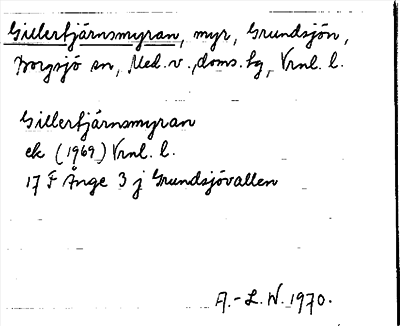 Gillertjärnsmyran, myr, Grundsjön,
Borgsjö sn, Med. v., doms. hg, Vrnl. l.
Gillertjärnsmyran
ek (1969) Vrnl. l.
17 F Ånge 3 j Grundsjövallen
A.-L. W. 1970.